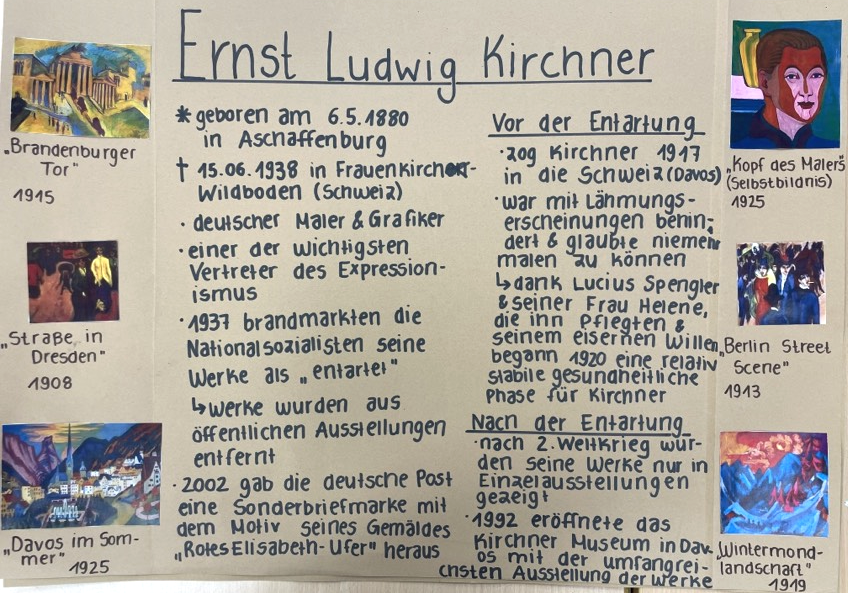 Ernst Ludwig Kirchner
„Brandenburger
Tor"
1915
„Straße in
Dresden"
1908
„Davos im Som-
mer"
1925
* geboren am 6.5.1880
in Aschaffenburg
† 15.06.1938 in Frauenkirch-
Wildboden (Schweiz)
· deutscher Maler & Grafiker
· einer der wichtigsten
Vertreter des Expression-
ismus
· 1937 brandmarkten die
Nationalsozialisten seine
Werke als „entartet"
↳ Werke wurden aus
öffentlichen Ausstellungen
entfernt
· 2002 gab die deutsche Post
eine Sonderbriefmarke mit
dem Motiv seines Gemäldes
„Rotes Elisabeth-Ufer" heraus
Vor der Entartung
· zog Kirchner 1917
in die Schweiz (Davos)
· war mit Lähmungs-
erscheinungen behin-
dert & glaubte niemehr
malen zu können
↳ dank Lucius Spengler
& seiner Frau Helene,
die inn Pflegten &
seinem eisernen Willen
begann 1920 eine relativ
stabile gesundheitliche
Phase für Kirchner
Nach der Entartung
· nach 2. Weltkrieg wur-
den seine Werke nur in
Einzelausstellungen
gezeigt
· 1992 eröffnete das
Kirchner Museum in Dav-
os mit der umfangrei-
chsten Ausstellung der Werke
„Kopf des Malers"
(Selbstbildnis)
1925
„Berlin Street
Scene"
1913
„Wintermond-
landschaft"
1919